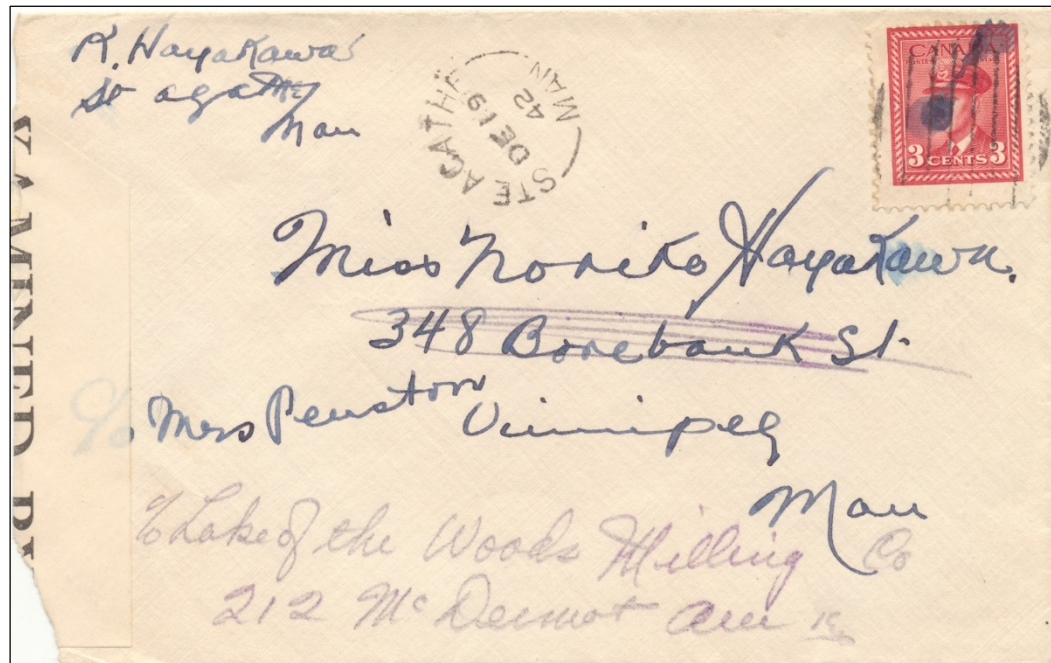 R. Hayakawa
St agathe
Man
STE AGATHE
DE 19
42
MAN
CANADA
3 CENTS 3
Miss Noriko Hayakawa.
348 Borebank St.
c/o Mrs Penston
Winnipeg
Man
c/o Lake of the Woods Milling Co
212 McDermot Ave
EXAMINED BY